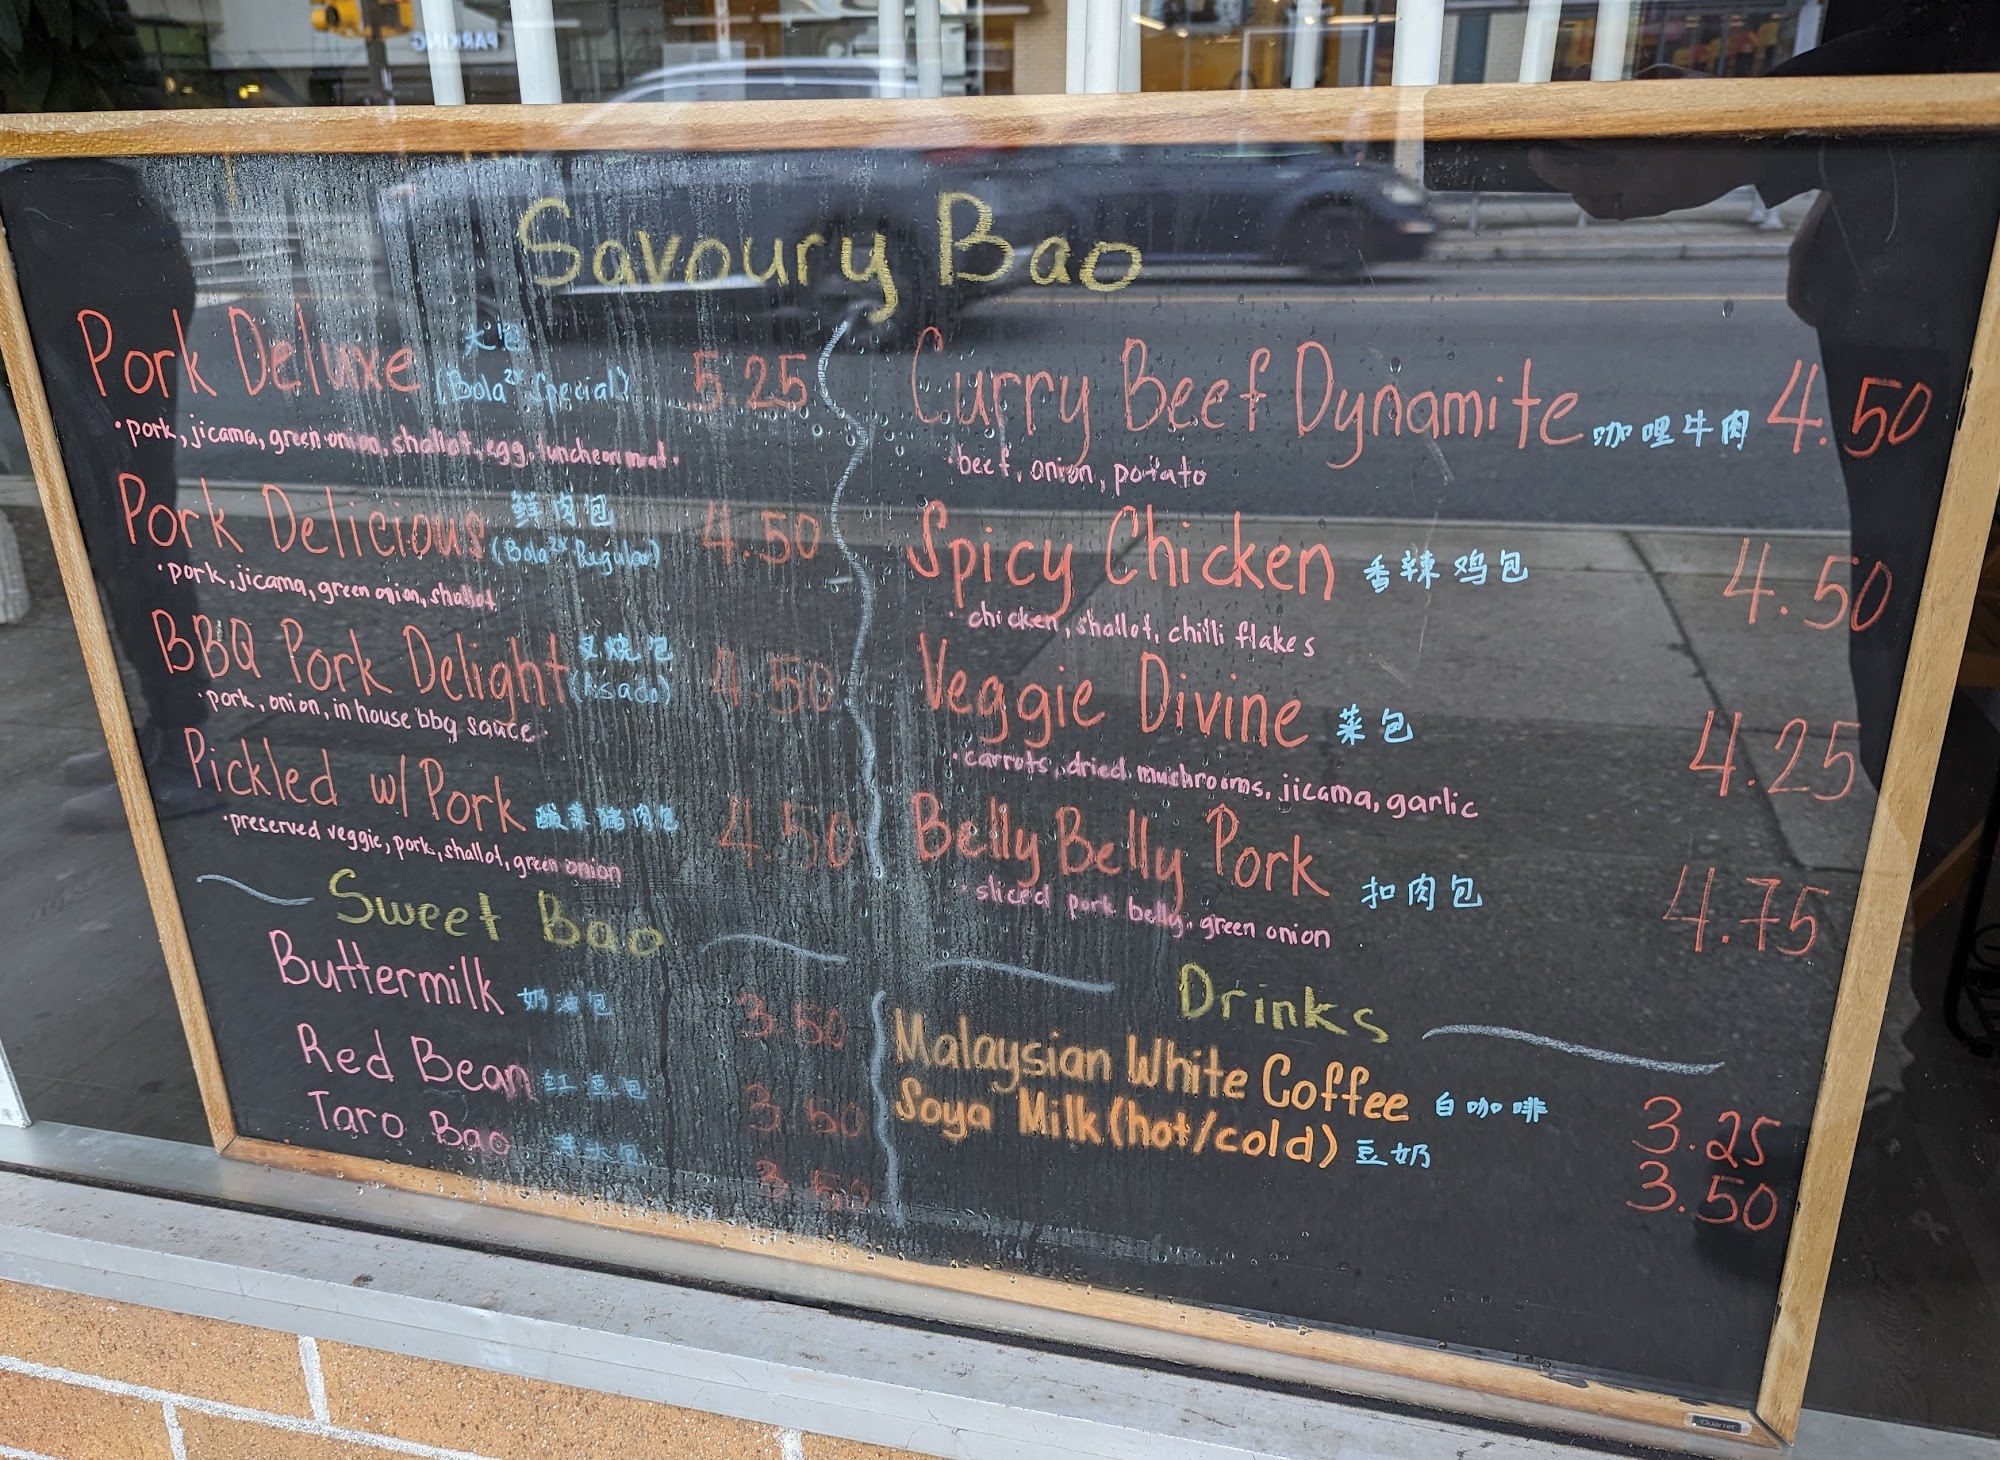 PARKING
Savoury Bao
Pork Deluxe 大包 (Bola²ˣ Special) 5.25
·pork, jicama, green onion, shallot, egg, luncheon meat.
Pork Delicious 鲜肉包 (Bola²ˣ Regular) 4.50
·pork, jicama, green onion, shallot
BBQ Pork Delight 叉烧包 (Asado) 4.50
·pork, onion, in house bbq sauce.
Pickled w/ Pork 酸菜猪肉包 4.50
·preserved veggie, pork, shallot, green onion
Curry Beef Dynamite 咖哩牛肉 4.50
·beef, onion, potato
Spicy Chicken 香辣鸡包 4.50
·chicken, shallot, chilli flakes
Veggie Divine 菜包 4.25
·carrots, dried mushrooms, jicama, garlic
Belly Belly Pork 扣肉包 4.75
·sliced pork belly, green onion
Sweet Bao
Buttermilk 奶油包 3.50
Red Bean 红豆包 3.50
Taro Bao 芋头包 3.50
Drinks
Malaysian White Coffee 白咖啡 3.25
Soya Milk (hot/cold) 豆奶 3.50
Quartet